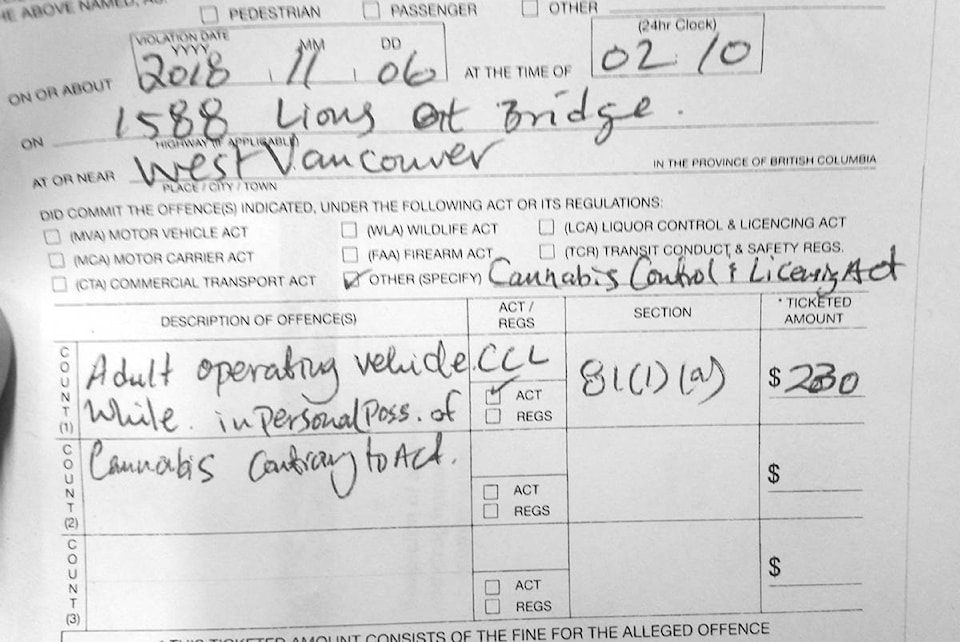 HE ABOVE NAMED, AS:
☐ PEDESTRIAN ☐ PASSENGER ☐ OTHER
VIOLATION DATE
YYYY MM DD
(24hr Clock)
ON OR ABOUT 2018 11 06 AT THE TIME OF 02 10
ON 1588 Lions Bridge.
HIGHWAY (IF APPLICABLE)
AT OR NEAR West Vancouver IN THE PROVINCE OF BRITISH COLUMBIA
PLACE / CITY / TOWN
DID COMMIT THE OFFENCE(S) INDICATED, UNDER THE FOLLOWING ACT OR ITS REGULATIONS:
☐ (MVA) MOTOR VEHICLE ACT ☐ (WLA) WILDLIFE ACT ☐ (LCA) LIQUOR CONTROL & LICENCING ACT
☐ (MCA) MOTOR CARRIER ACT ☐ (FAA) FIREARM ACT ☐ (TCR) TRANSIT CONDUCT & SAFETY REGS.
☐ (CTA) COMMERCIAL TRANSPORT ACT ☑ OTHER (SPECIFY) Cannabis Control & Licensing Act
DESCRIPTION OF OFFENCE(S) ACT / REGS SECTION * TICKETED AMOUNT
COUNT (1) Adult operating vehicle CCL 81(1)(a) $ 230
☑ ACT
While in personal poss. of ☐ REGS
COUNT (2) Cannabis Contrary to Act. $
☐ ACT
☐ REGS
COUNT (3) $
☐ ACT
☐ REGS
* THIS TICKETED AMOUNT CONSISTS OF THE FINE FOR THE ALLEGED OFFENCE